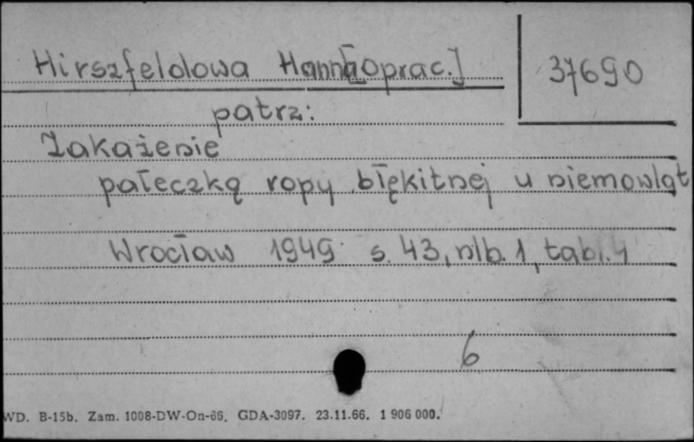 Hirszfeldowa Hanna [oprac.]
37690
patrz:
Zakażenie
pałeczką ropy błękitnej u niemowląt
Wrocław 1949 s. 43, nlb. 1, tabl. 4
6
WD. B-15b. Zam. 1008-DW-On-66. GDA-3097. 23.11.66. 1 906 000.